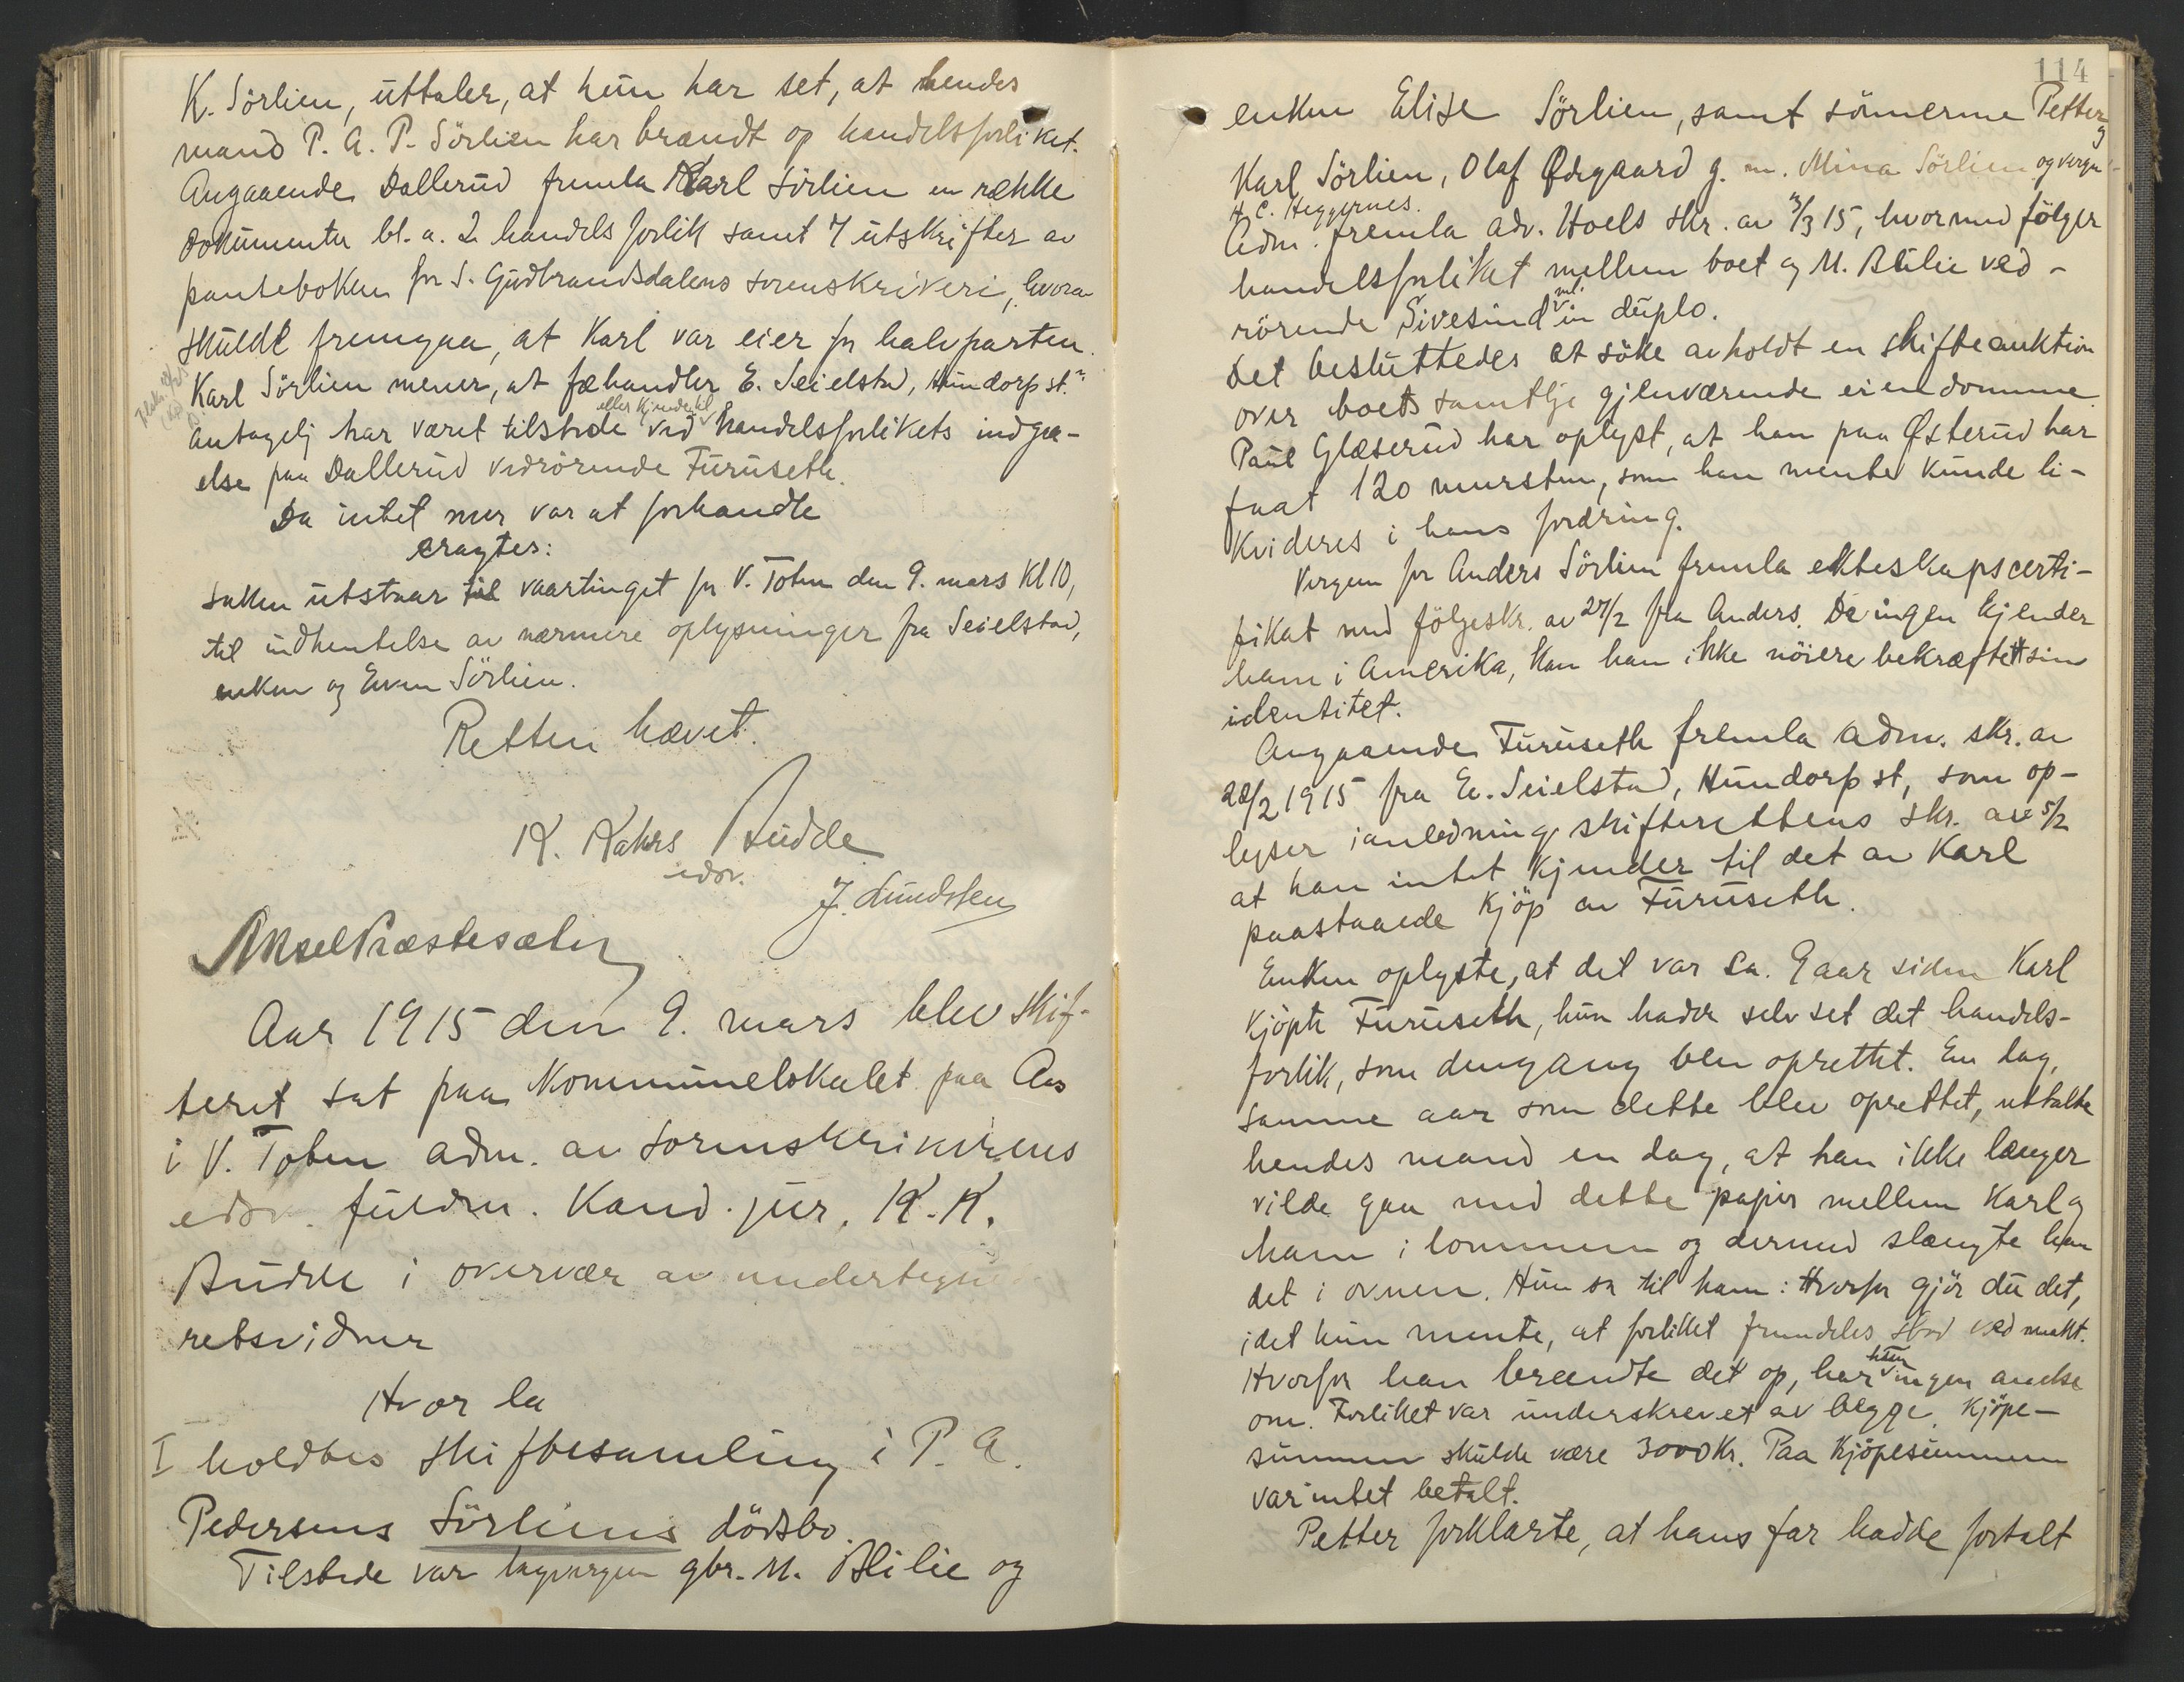 K. Sörlien, uttaler, at hun har set, at hendes
mand P. A. P. Sörlien har brændt op handelsforliket.
Angaaende Dallerud fremla Karl Sörlien en række
dokumenter bl. a. 2 handelsforlik samt 7 utskrifter av
panteboken for S. Gudbrandsdalens sorenskriveri, hvorav
skulde fremgaa, at Karl var eier for halvparten.
Karl Sörlien mener, at fæhandler E. Seielstad, Hundorp st.
eller kjende til
antagelig har været tilstede ved handelsforlikets indgaa-
else paa Dallerud vedrörende Furuseth.
Da intet mer var at forhandle
eragtes:
Saken utstaar til vaartinget for V. Toten den 9. mars kl 10,
til indhentelse av nærmere oplysninger fra Seielstad,
enken og Even Sörlien.
Retten hævet.
K. Kahrs Budde
edsv.
J. Lundsten
Aksel Præstesæter
Aar 1915 den 9. mars blev skif-
teret sat paa Kommunelokalet paa Aas
i V. Toten adm. av sorenskriverens
edsv. fuldm. Kand. jur. K. K.
Budde i overvær av undertegnede
retsvidner
Hvor la
I holdtes skiftesamling i P. A.
Pedersens Sörliens dödsbo.
Tilstede var lagvergen gbr. M. Blilie og
114
enken Elise Sörlien, samt sönnerne Petter og
Karl Sörlien, Olaf Ødegaard g. m. Mina Sörlien og verge
H. C. Heggernes.
Adm. fremla adv. Hoels skr. av 3/3 15, hvormed fölger
handelsforliket mellem boet og M. Blilie ved-
rörende Sivesind in duplo.
Det besluttedes at söke avholdt en skifteauktion
over boets samtlige gjenværende eiendomme.
Paul Glæserud har oplyst, at han paa Østerud har
faat 120 mursten, som han mente kunde li-
kvideres i hans fordring.
Vergen for Anders Sörlien fremla ekteskapscerti-
fikat med fölgeskr. av 27/2 fra Anders. Da ingen kjender
ham i Amerika, kan han ikke nöiere bekræftet sin
identitet.
Angaaende Furuseth fremla adm. skr. av
28/2 1915 fra E. Seielstad, Hundorp st, som op-
lyser i anledning skifterettens skr. av 5/2
at han intet kjender til det av Karl
paastaaede kjöp av Furuseth.
Enken oplyste, at det var ca. 9 aar siden Karl
kjöpte Furuseth, hun hadde selv set det handels-
forlik, som dengang blev oprettet. En dag,
samme aar som dette blev oprettet, uttalte
hendes mand en dag, at han ikke længer
vilde gaa med dette papir mellem Karl og
ham i lommen og dermed slængte han
det i ovnen. Hun sa til ham: Hvorfor gjör du det,
idet hun mente, at forliket fremdeles stod ved makt.
hun
Hvorfor han brændte det op, har ingen anelse
om. Forliket var underskrevet av begge. Kjöpe-
summen skulde være 3000 kr. Paa kjöpesummen
var intet betalt.
Petter forklarte, at hans far hadde fortalt